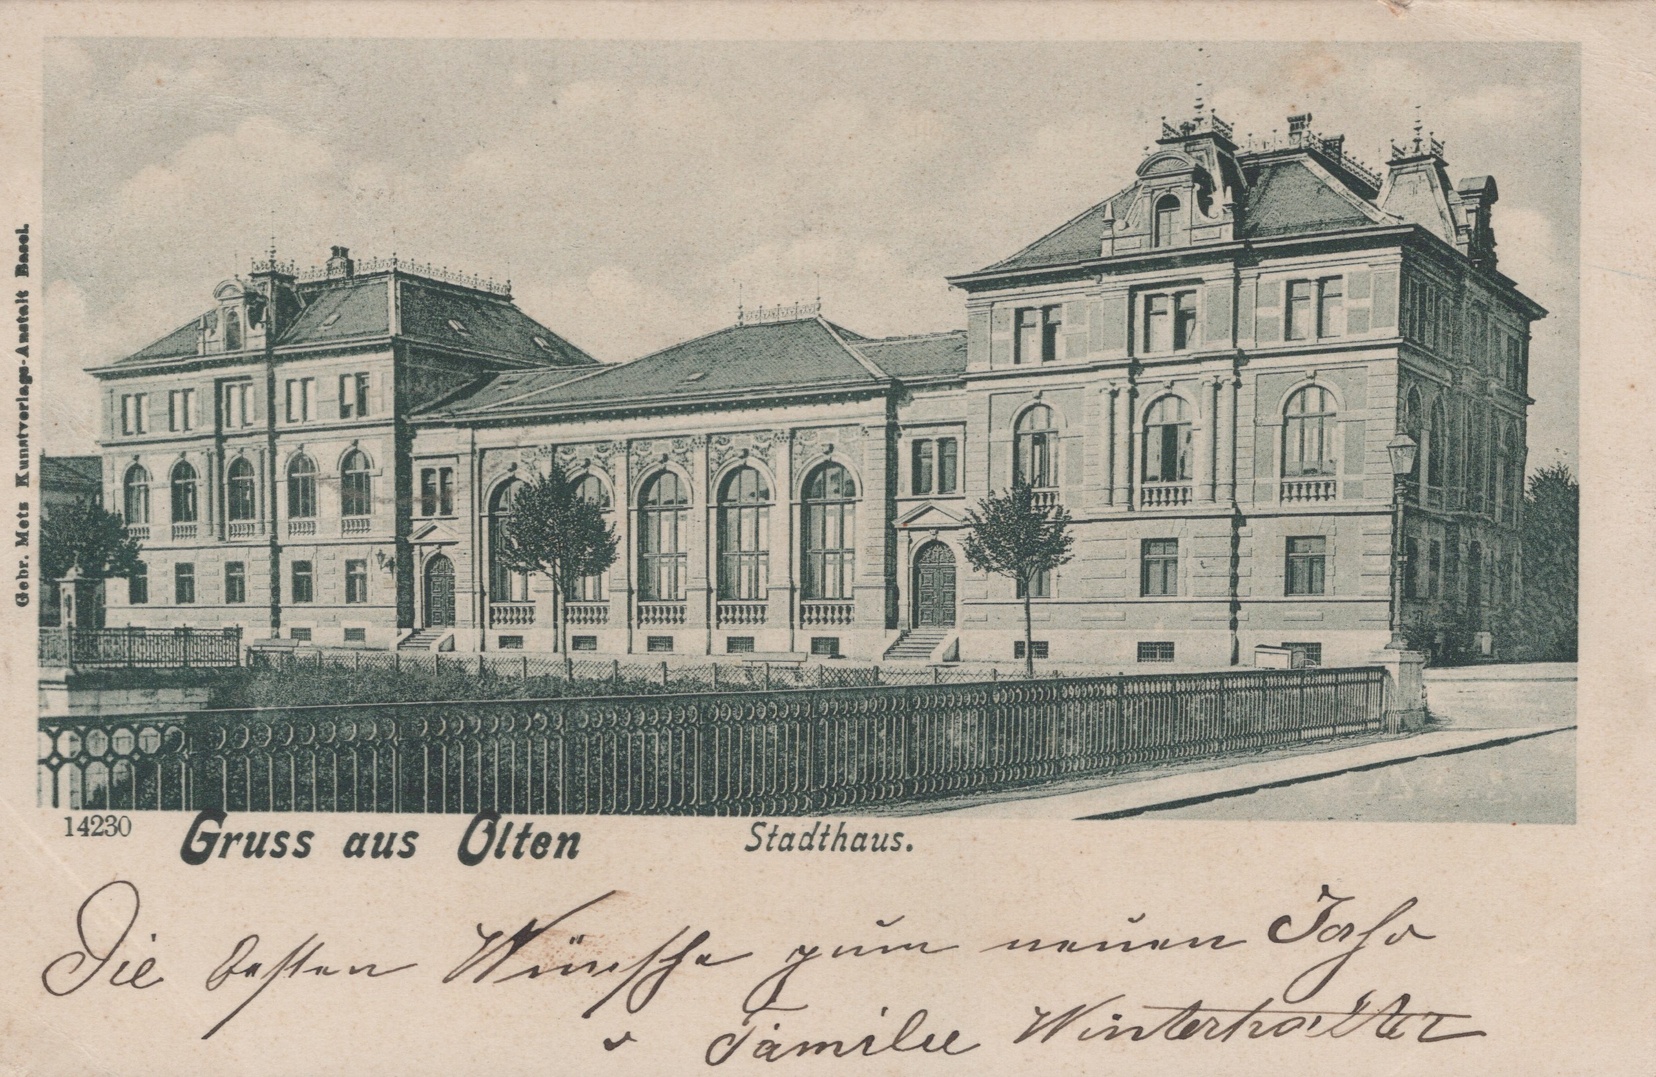 Gebr. Metz Kunstverlags-Anstalt Basel.
14230 Gruss aus Olten Stadthaus.
Die besten Wünsche zum neuen Jahr
Familie Winterhalter